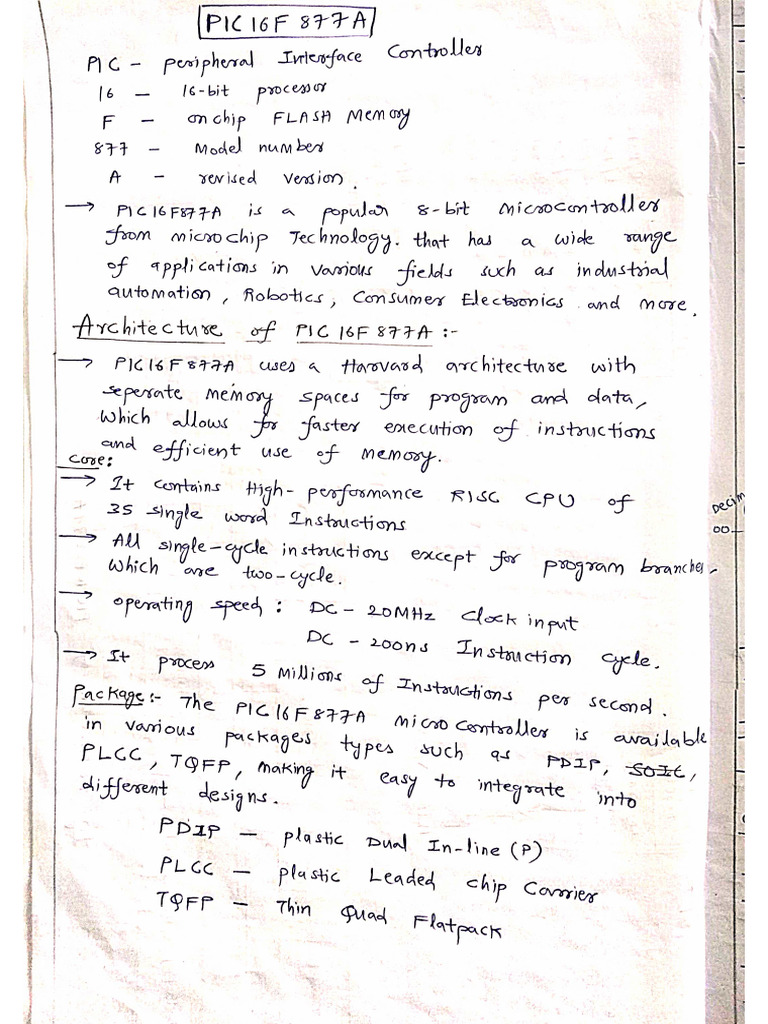 PIC 16F 877A
PIC - peripheral Interface Controller
16 - 16-bit processor
F - on chip FLASH Memory
877 - Model number
A - revised version.
→ PIC16F877A is a popular 8-bit Microcontroller
from microchip Technology. that has a wide range
of applications in various fields such as industrial
automation, Robotics, Consumer Electronics and more.
Architecture of PIC 16F 877A :-
→ PIC16F877A uses a Harvard architecture with
seperate memory spaces for program and data,
which allows for faster execution of instructions
and efficient use of memory.
Core:
→ It contains High-performance RISC CPU of
35 single word Instructions
→ All single-cycle instructions except for program branches,
which are two-cycle.
→ operating speed : DC - 20MHz Clock input
DC - 200ns Instruction cycle.
→ It process 5 Millions of Instructions per second.
Package:- The PIC16F877A micro controller is available
in various packages types such as PDIP, SOIC,
PLCC, TQFP, making it easy to integrate into
different designs.
PDIP - plastic Dual In-line (P)
PLCC - plastic Leaded chip Carrier
TQFP - Thin Quad Flatpack
Decim
00.-